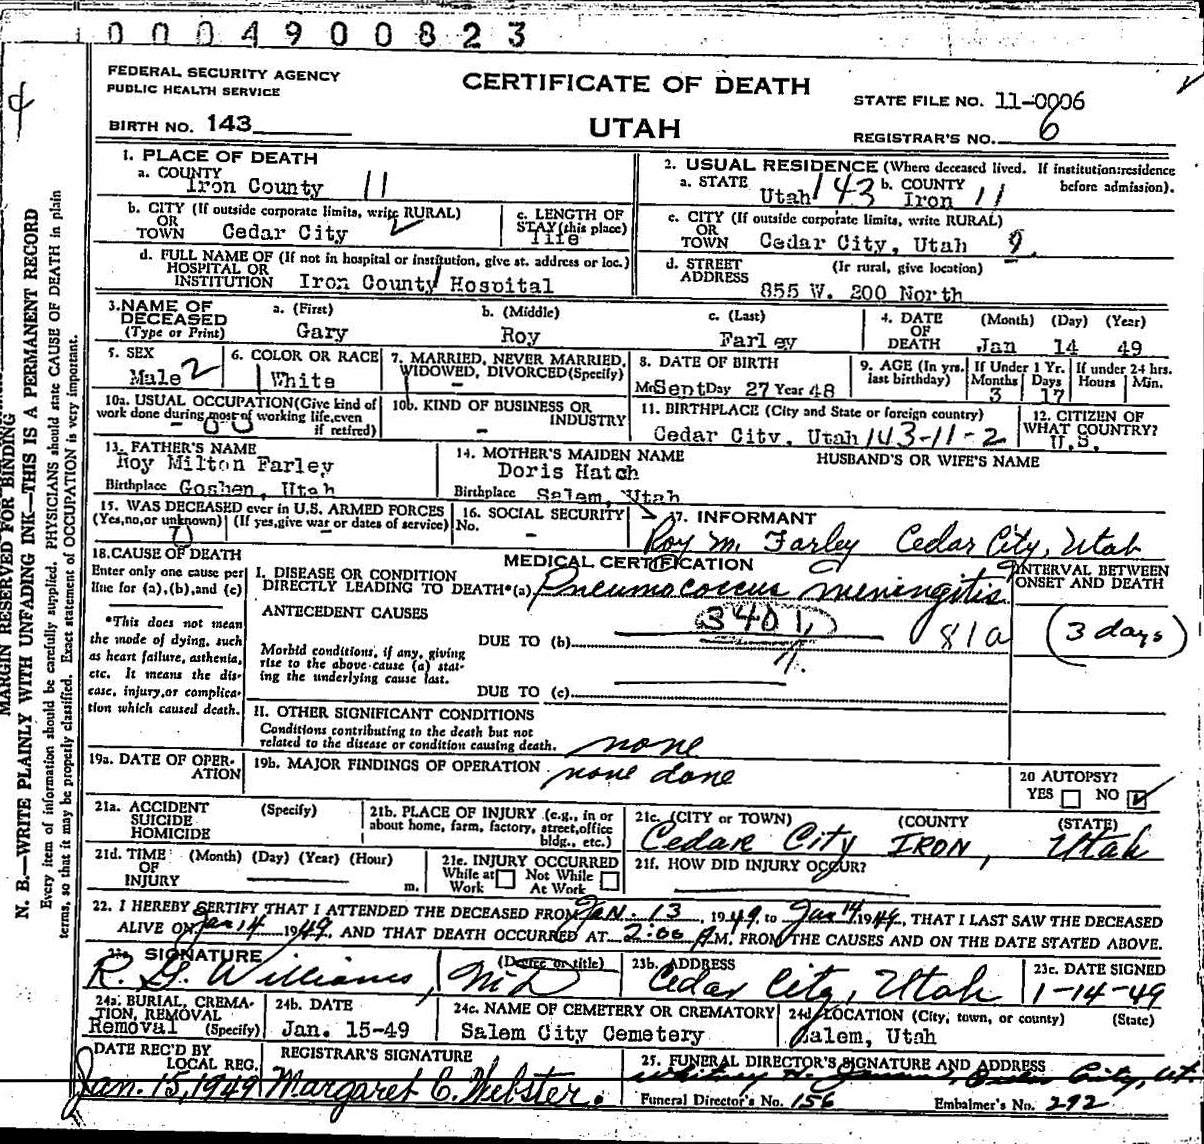 0 0 0 4 9 0 0 8 2 3
FEDERAL SECURITY AGENCY
PUBLIC HEALTH SERVICE
CERTIFICATE OF DEATH
STATE FILE NO. 11-0006
BIRTH NO. 143
UTAH
REGISTRAR'S NO. 6
1. PLACE OF DEATH
a. COUNTY
Iron County 11
2. USUAL RESIDENCE (Where deceased lived. If institution:residence before admission).
a. STATE Utah 143 b. COUNTY Iron 11
b. CITY (If outside corporate limits, write RURAL)
OR
TOWN Cedar City 2
c. LENGTH OF
STAY (this place)
life
c. CITY (If outside corporate limits, write RURAL)
OR
TOWN Cedar City, Utah 9.
d. FULL NAME OF (If not in hospital or institution, give st. address or loc.)
HOSPITAL OR
INSTITUTION Iron County Hospital
d. STREET (If rural, give location)
ADDRESS
855 W. 200 North
3. NAME OF DECEASED (Type or Print)
a. (First) Gary
b. (Middle) Roy
c. (Last) Farley
4. DATE OF DEATH (Month) (Day) (Year)
Jan 14 49
5. SEX
Male 2
6. COLOR OR RACE
White
7. MARRIED, NEVER MARRIED, WIDOWED, DIVORCED (Specify)
-
8. DATE OF BIRTH
Mo Sent Day 27 Year 48
9. AGE (In yrs. last birthday)
If Under 1 Yr. Months Days
3 17
If under 24 hrs. Hours Min.
10a. USUAL OCCUPATION (Give kind of work done during most of working life, even if retired)
10b. KIND OF BUSINESS OR INDUSTRY
-
11. BIRTHPLACE (City and State or foreign country)
Cedar City, Utah 143-11-2
12. CITIZEN OF WHAT COUNTRY?
U.S.
13. FATHER'S NAME
Roy Milton Farley
Birthplace Goshen, Utah
14. MOTHER'S MAIDEN NAME
Doris Hatch
Birthplace Salem, Utah
HUSBAND'S OR WIFE'S NAME
15. WAS DECEASED ever in U.S. ARMED FORCES
(Yes, no, or unknown) (If yes, give war or dates of service)
16. SOCIAL SECURITY
No. -
17. INFORMANT
Roy M. Farley Cedar City, Utah
18. CAUSE OF DEATH
Enter only one cause per line for (a), (b), and (c)
MEDICAL CERTIFICATION
INTERVAL BETWEEN ONSET AND DEATH
I. DISEASE OR CONDITION
DIRECTLY LEADING TO DEATH*(a) Pneumococcus meningitis
ANTECEDENT CAUSES
3401
DUE TO (b) 81a
(3 days)
*This does not mean the mode of dying, such as heart failure, asthenia, etc. It means the disease, injury, or complication which caused death.
Morbid conditions, if any, giving rise to the above cause (a) stating the underlying cause last.
DUE TO (c)
II. OTHER SIGNIFICANT CONDITIONS
Conditions contributing to the death but not related to the disease or condition causing death. none
19a. DATE OF OPERATION
19b. MAJOR FINDINGS OF OPERATION none done
20 AUTOPSY?
YES NO
21a. ACCIDENT SUICIDE HOMICIDE (Specify)
21b. PLACE OF INJURY (e.g., in or about home, farm, factory, street, office bldg., etc.)
21c. (CITY or TOWN) (COUNTY (STATE)
Cedar City IRON, Utah
21d. TIME OF INJURY (Month) (Day) (Year) (Hour) m.
21e. INJURY OCCURRED
While at Work Not While At Work
21f. HOW DID INJURY OCCUR?
22. I HEREBY CERTIFY THAT I ATTENDED THE DECEASED FROM Jan. 13, 1949, to Jan 14 1949, THAT I LAST SAW THE DECEASED
ALIVE ON Jan 14 1949, AND THAT DEATH OCCURRED AT 2:00 P.M. FROM THE CAUSES AND ON THE DATE STATED ABOVE.
23a SIGNATURE (Degree or title)
R. G. Williams, MD
23b. ADDRESS
Cedar City, Utah
23c. DATE SIGNED
1-14-49
24a. BURIAL, CREMATION, REMOVAL (Specify)
Removal
24b. DATE
Jan. 15-49
24c. NAME OF CEMETERY OR CREMATORY
Salem City Cemetery
24d. LOCATION (City, town, or county) (State)
Salem, Utah
DATE REC'D BY LOCAL REG.
Jan. 15, 1949
REGISTRAR'S SIGNATURE
Margaret C. Webster.
25. FUNERAL DIRECTOR'S SIGNATURE AND ADDRESS
Cedar City, Ut.
Funeral Director's No. 156 Embalmer's No. 292
MARGIN RESERVED FOR BINDING
N. B.—WRITE PLAINLY WITH UNFADING INK—THIS IS A PERMANENT RECORD
Every item of information should be carefully supplied. PHYSICIANS should state CAUSE OF DEATH in plain
terms, so that it may be properly classified. Exact statement of OCCUPATION is very important.